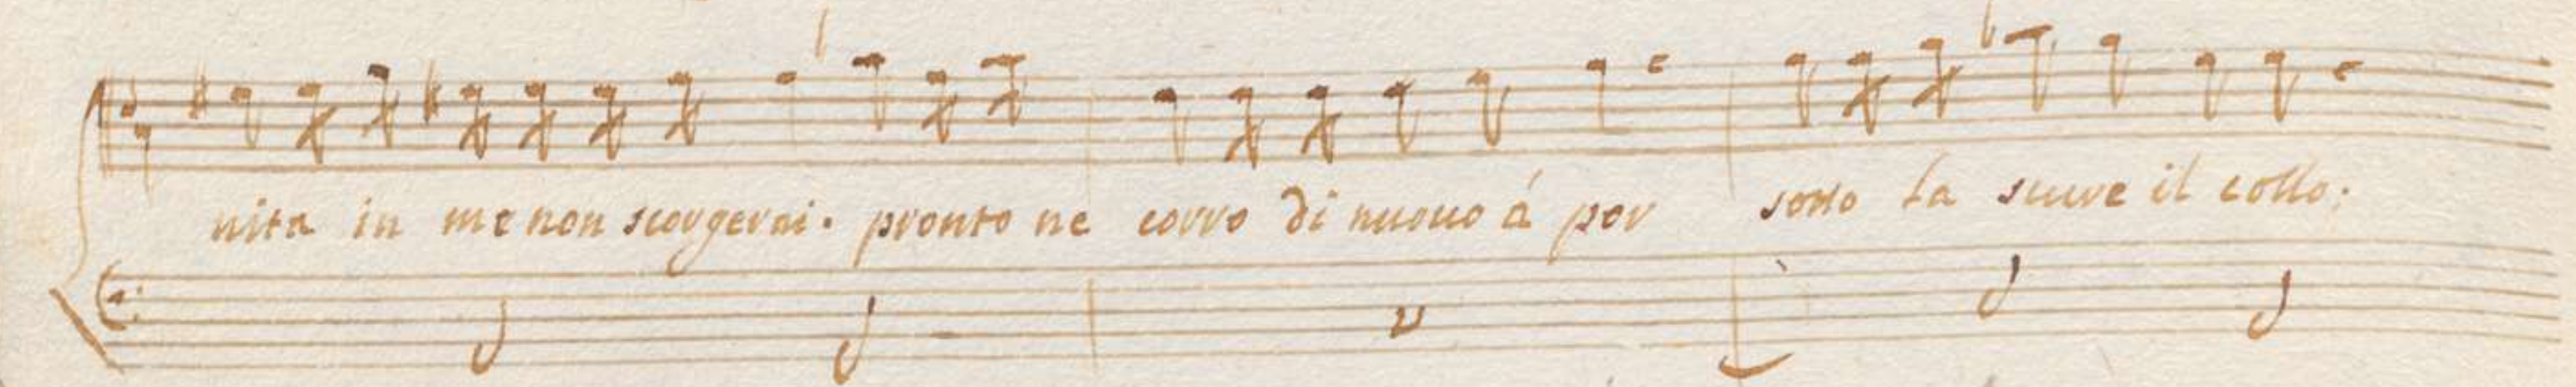 nita in me non scorgerai. pronto ne corro di nuouo á por sotto la scure il collo.